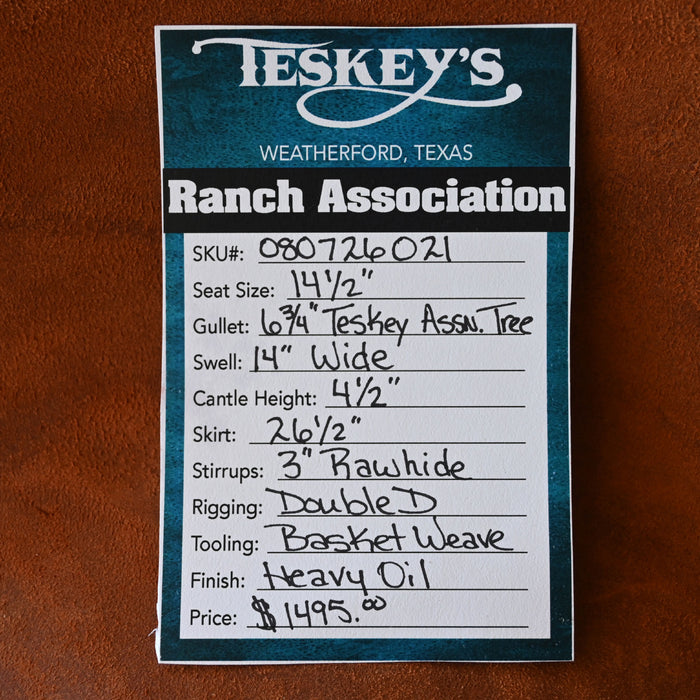 TESKEY'S
WEATHERFORD, TEXAS
Ranch Association
SKU#: 080726021
Seat Size: 14 1/2"
Gullet: 6 3/4" Teskey Assn. Tree
Swell: 14" Wide
Cantle Height: 4 1/2"
Skirt: 26 1/2"
Stirrups: 3" Rawhide
Rigging: Double D
Tooling: Basket Weave
Finish: Heavy Oil
Price: $1495.00